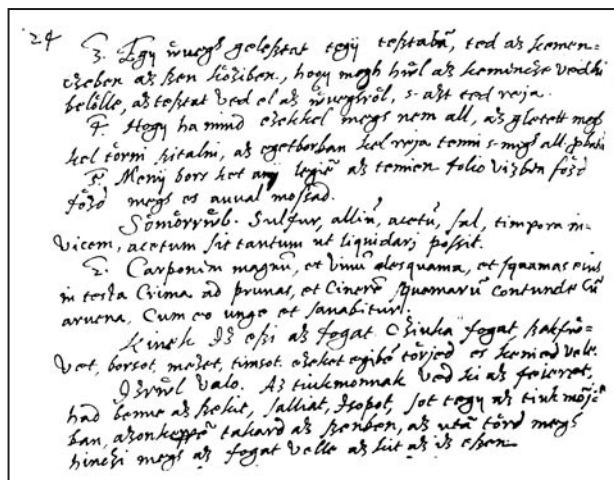 24
3. Egy wuegs geleßtat tegij teßtaban, ted az kemen-
czeben az ßen köziben, hogy megh hwl az keminche vedhi
belölle, az teßtat ved el az wuegsröl, s-azt ted reja.
4. Hogy ha mind ezekkel megs nem all, az gletett megs
kel törni sitalni, az egetborban kel reja tenni s-migs all
5. Menij borr ket anij legiē az temien folio vizben főzd
főzd megs es auual mossad.
Sömörrwl. Sulfur, alliū, acetū, sal, timpora in-
vicem, acetum sit tantum ut liquidari possit.
2. Carponim magnū, et vinū desquama, et squamas eius
in testa Crima ad prunas, et Cinerē squamarū contunde cū
aruena, Cum eo unge et sanabitur.
Kinek Iz eßi az fogat. Cziuka fogat, ßakfiö-
vet, borsot, mezet, timsot. ezeket egibē törjed es kenied vele.
Izrwl valo. Az tiukmonnak ved ki az feieret,
had benne az ßekit, salliat, Isopot, sot tegij az tiuk
ban, azonkeppē takard az ßenben, az utā törd megs
hinczi megs az fogat velle az kit az iz eßen.